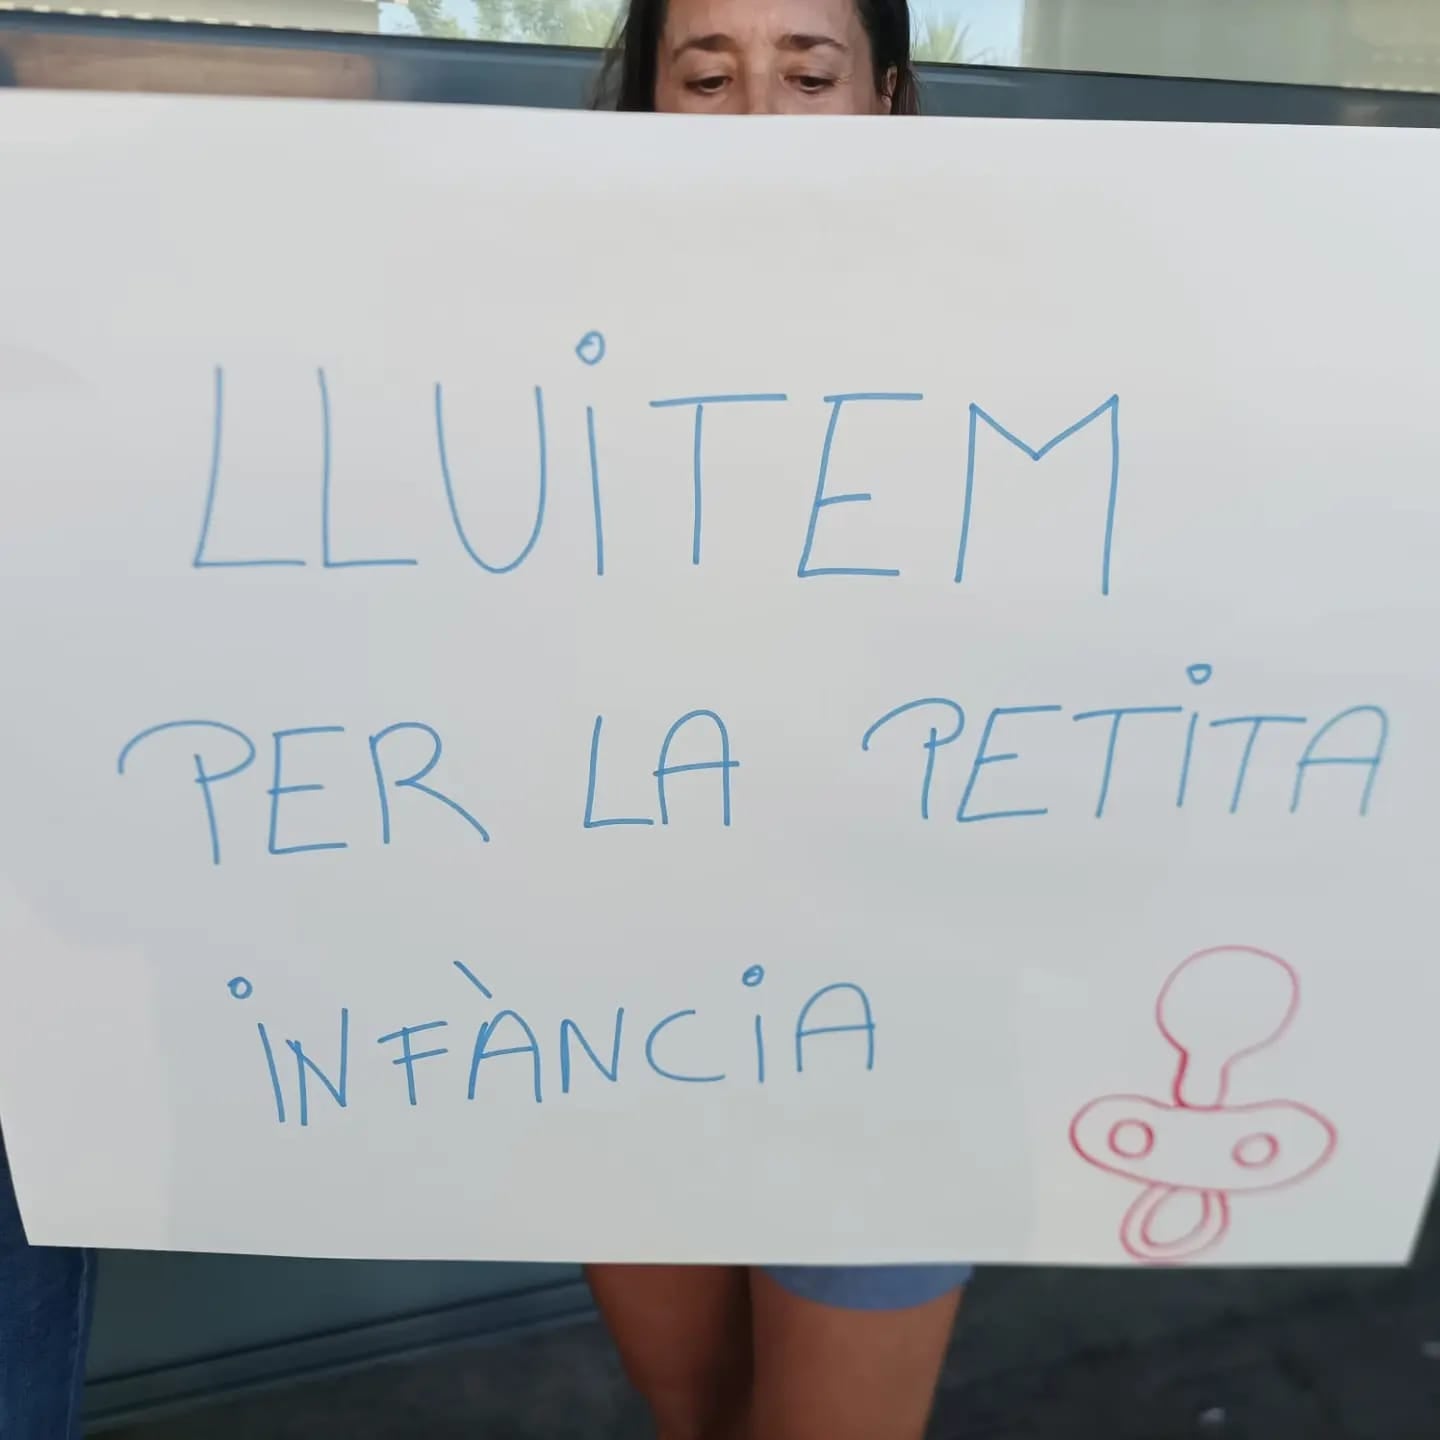 LLUiTEM
PER LA PETiTA
iNFÀNCiA